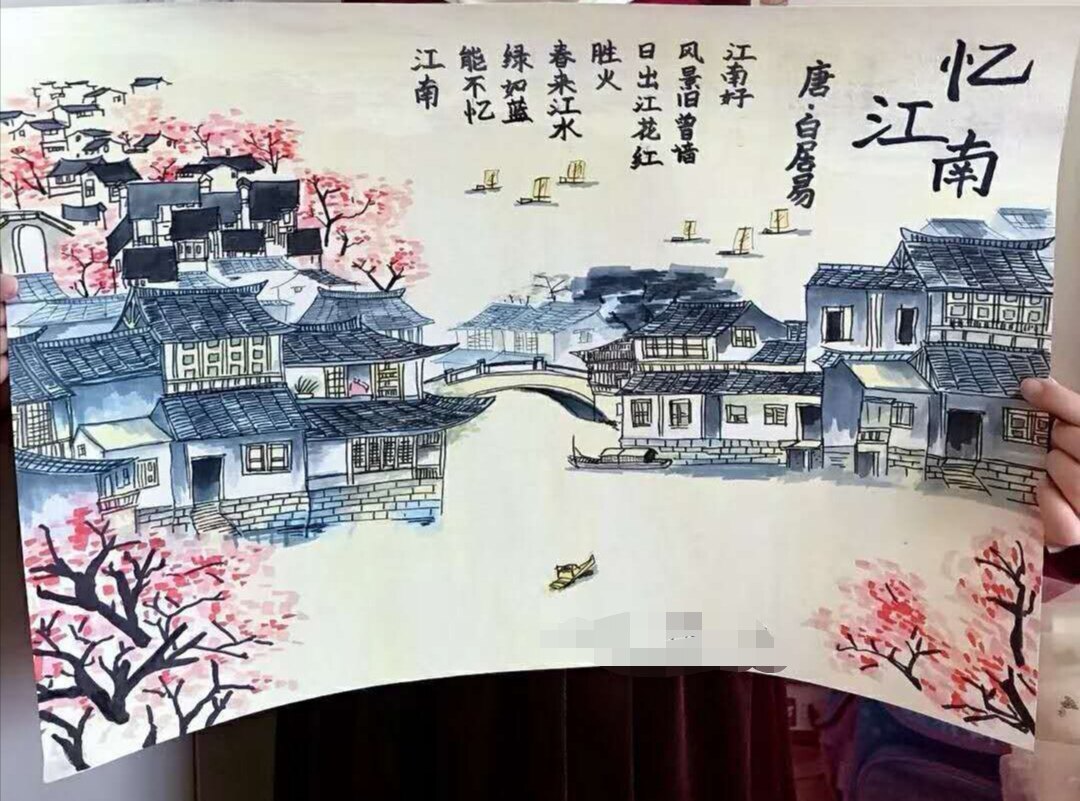 忆江南
唐·白居易
江南好
风景旧曾谙
日出江花红
胜火
春来江水
绿如蓝
能不忆
江南